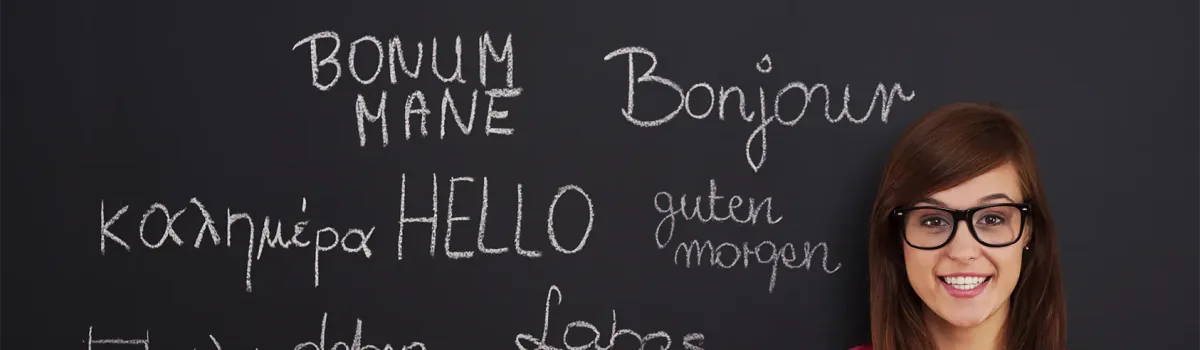 BONUM
MANE
Bonjour
καλημέρα
HELLO
guten
morgen
Labas